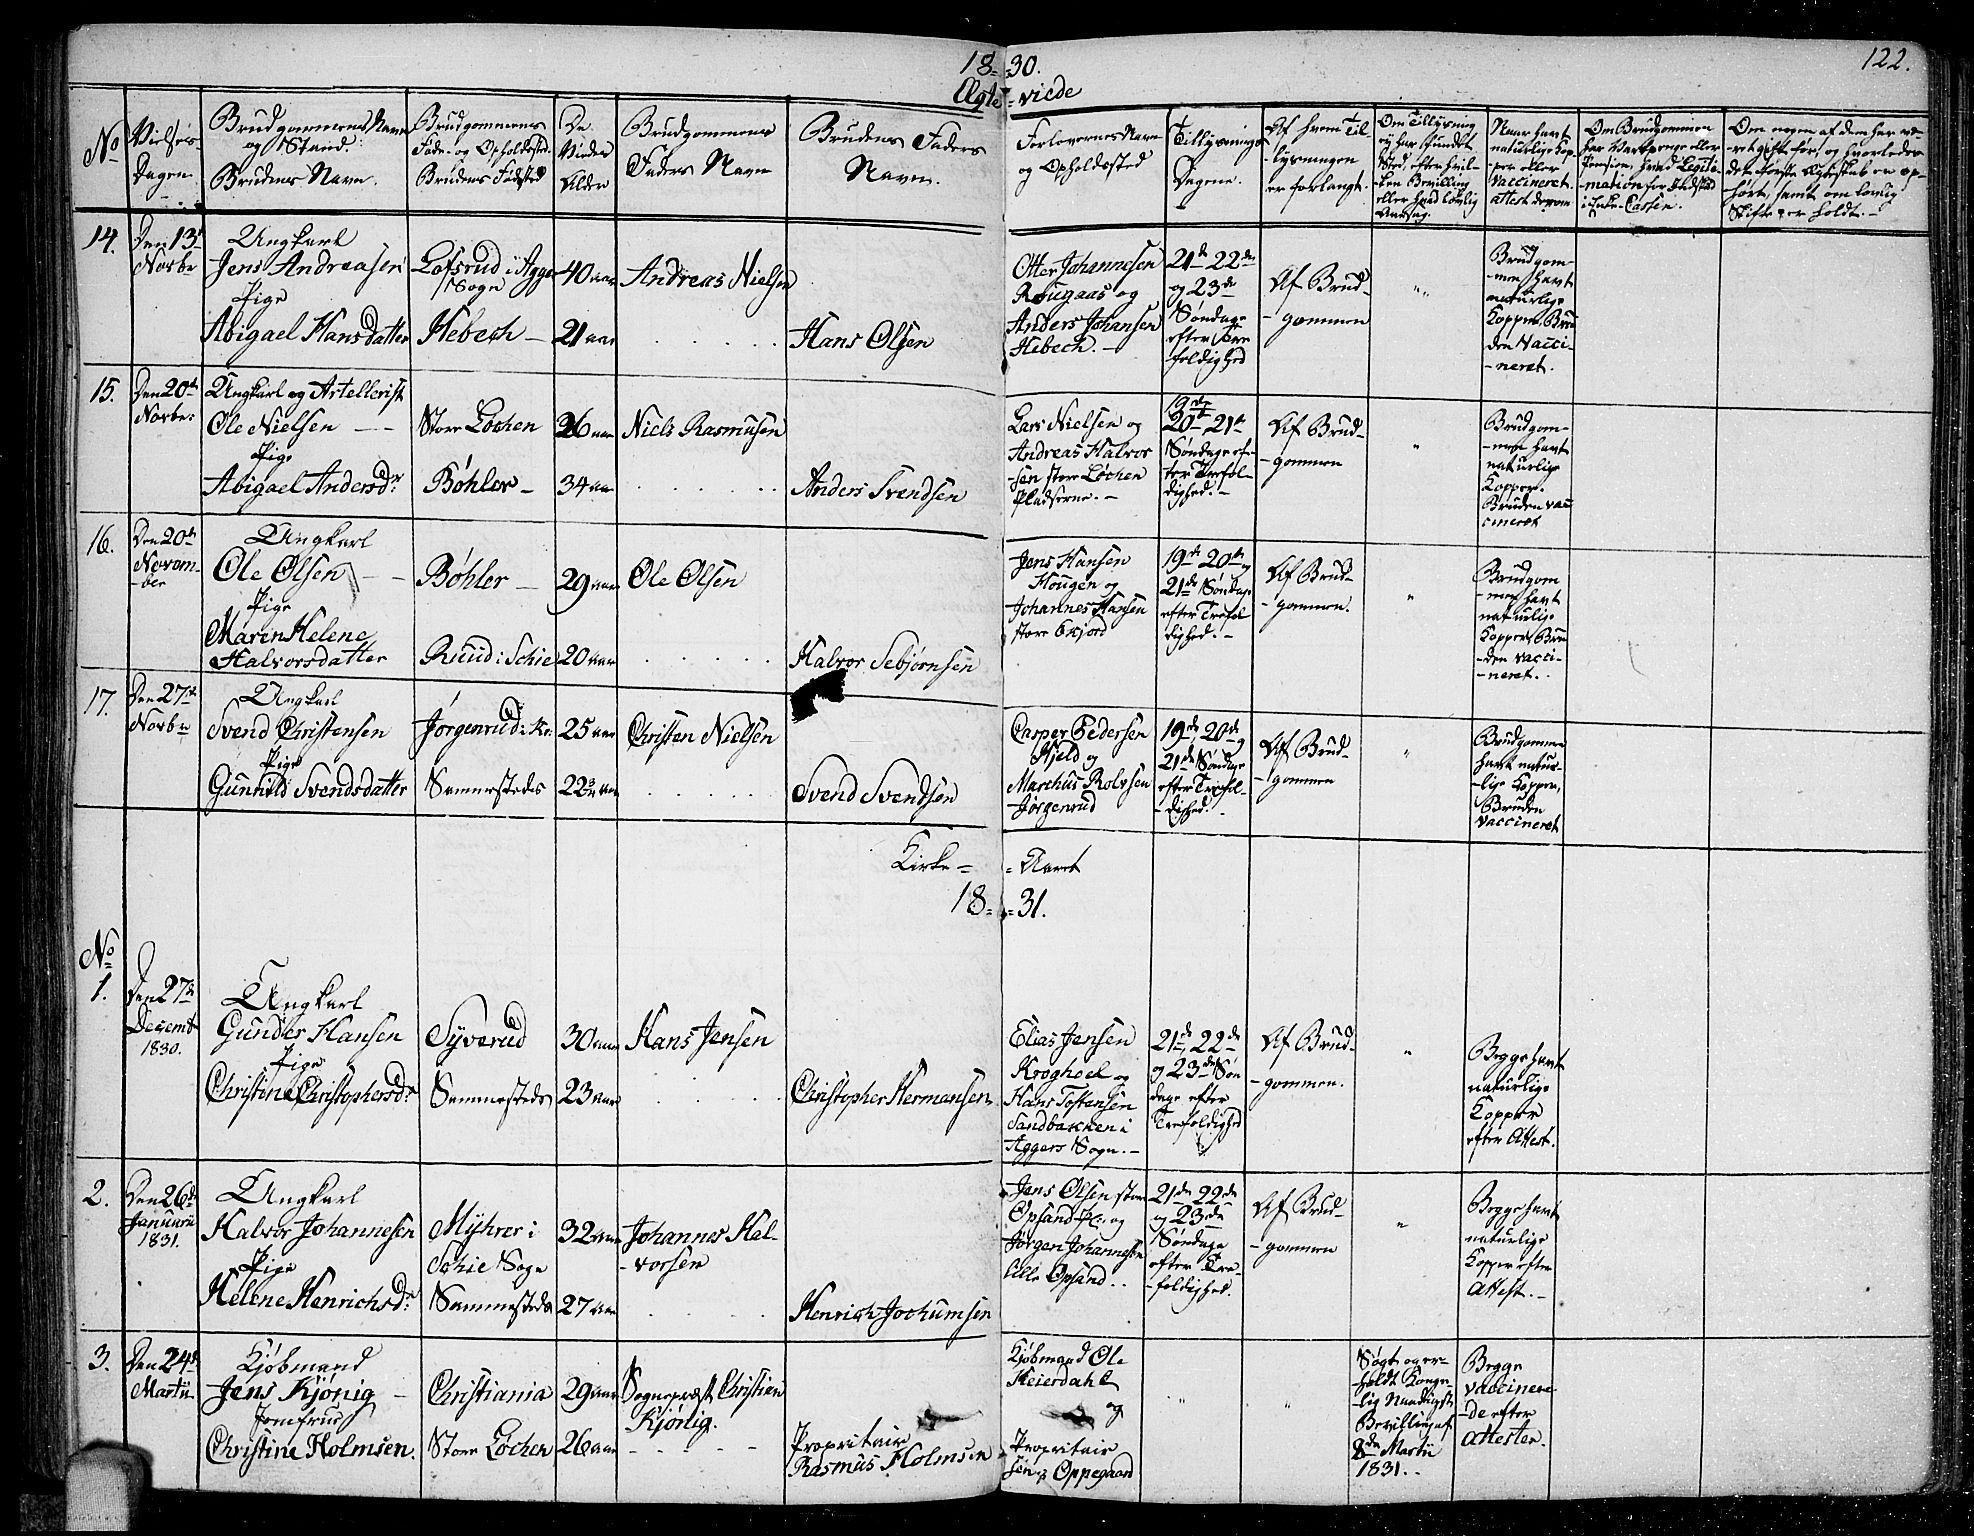 18=30.
122.
Ægte=viede
No
Vielses-
Dagen
Brudgommens Navn
og Stand.
Brudens Navn.
Brudgommens
Føde- og Opholdssted.
Brudens Fødsted
De
Viedes
Alder
Brudgommens
Faders Navn
Brudens Faders
Navn.
Forlovernes Navn
og Opholdssted
Tillysnings
Dagene.
Af hvem Til
-lysningen
er forlangt.
Om Tillysning
ey har fundet
Sted, efter hvil-
ken Bevilling
eller hvad lovlig
Aarsag.
Naar havt
naturlige Kop-
per eller
vaccineret.
attest derom
Om Brudgommen
har Vartpenge eller
Pension, hvad Legiti-
-mation for Indskud
i Enke-Cassen.
Om nogen af dem har væ-
ret gift før, og hvorledes
det første Ægteskab er op-
hørt, samt om lovlig
Skifte er holdt.
14.
Den 13de
Novbr
Ungkarl
Jens Andreasen
Pige
Abigael Hansdatter
Lofsrud i Agger
Sogn
Hebech
40 aar
21 aar
Andreas Nielsen
Hans Olsen
Otter Johannesen
Rougaas og
Anders Johansen
Hebech.
21de 22de
og 23de
Søndage
efter Tre
foldighed
Af Brud-
-gommen
Brudgom-
-men havt
naturlige
Kopper, Bru
den Vacci-
-neret.
15.
Den 20de
Novbr
Ungkarl og Artellerist
Ole Nielsen
Pige
Abigael Andersdr
Store Løchen
Bøhler
26 aar
34 aar
Niels Rasmusen
Anders Svendsen
Lars Nielsen og
Andreas Halvor
sen store Løchen
Pladserne.
19de
20de 21de
Søndage ef-
ter Trefol-
dighed.
Af Brud-
-gommen
Brudgom-
-men havt
naturlige
Kopper.
Bruden vac
cineret
16.
Den 20de
Novem-
-ber
Ungkarl
Ole Olsen
Pige
Maren Helene
Halvorsdatter
Bøhler
Ruud i Schie
29 aar
20 aar
Ole Olsen
Halvor Sebjørnsen
Jens Hansen
Hougen og
Johannes Hansen
store
19de 20de og
21de Søndage
efter Trefol
dighed.
Af Brud-
-gommen.
Brudgom
-men havt
naturlige
Kopper, Bru
-den vacci-
-neret.
17.
Den 27de
Novbr
Ungkarl
Svend Christensen
Pige
Gunnild Svendsdatter
Jørgenrud i Kr:
Sammestedes
25 aar
22 aar
Christen Nielsen
Svend Svendsen
Casper Pedersen
Hjeld og
Marthus Rolvsen
Jørgenrud
19de, 20de og
21de Søndage
efter Trefol-
-dighed.
Af Brud-
-gommen
Brudgommen
havt natur-
-lige Kopper,
Bruden
vaccineret
Kirke=Aaret
18=31.
No
1.
Den 27de
Decemb
1830.
Ungkarl
Gunder Hansen
Pige
Christine Christophersdr
Syverud
Sammestedes
30 aar
23 aar
Hans Jensen
Christopher Hermansen
Elias Jensen
Kroghoel og
Hans Tostensen
Sandbakken i
Aggers Sogn.
21de, 22de
og 23de Søn
dage efter
Trefoldighed
Af Brud-
-gommen.
Begge havt
naturlige
Kopper
efter Attest.
2.
Den 26de
Januari
1831.
Ungkarl
Halvor Johannesen
Pige
Helene Henrichsdr
Myhrer i
Schie Sogn
Sammestedes
32 aar
27 aar
Johannes Hal-
-vorsen
Henrich Jochumsen
Jens Olsen store
Opsand og
Jørgen Johannesen
lille Opsand.
21de 22de
og 23de
Søndage
efter Tre-
-foldighed.
Af Brud-
-gommen
Begge havt
naturlige
Kopper efter
Attest.
3.
Den 24de
Martii
Kjøbmand
Jens Kjønig
Jomfrue
Christine Holmsen.
Christiania
Store Løchen
29 aar
26 aar
Sognepræst Christian
Kjønig.
Propritair
Rasmus Holmsen
Kjøbmand Ole
Heierdahl
og
Propritair
Oppegaard
Søgt og er-
holdt Konge
lig Naadigst
Bevilling af
8de Martii
1831.
Begge
vaccinere
-de efter
Attester.